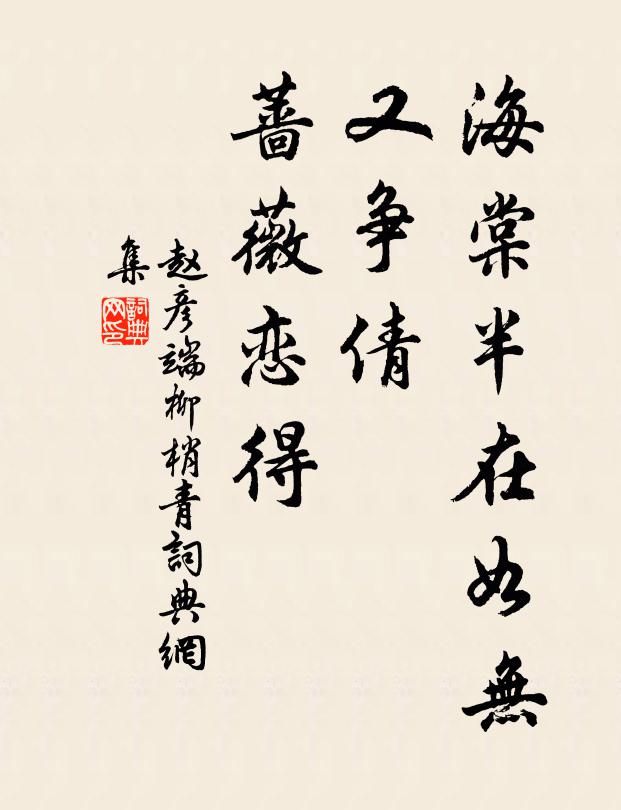 海棠半在如無
又争倩
蔷薇恋得
赵彦端柳梢青詞典網
集
詞典网印